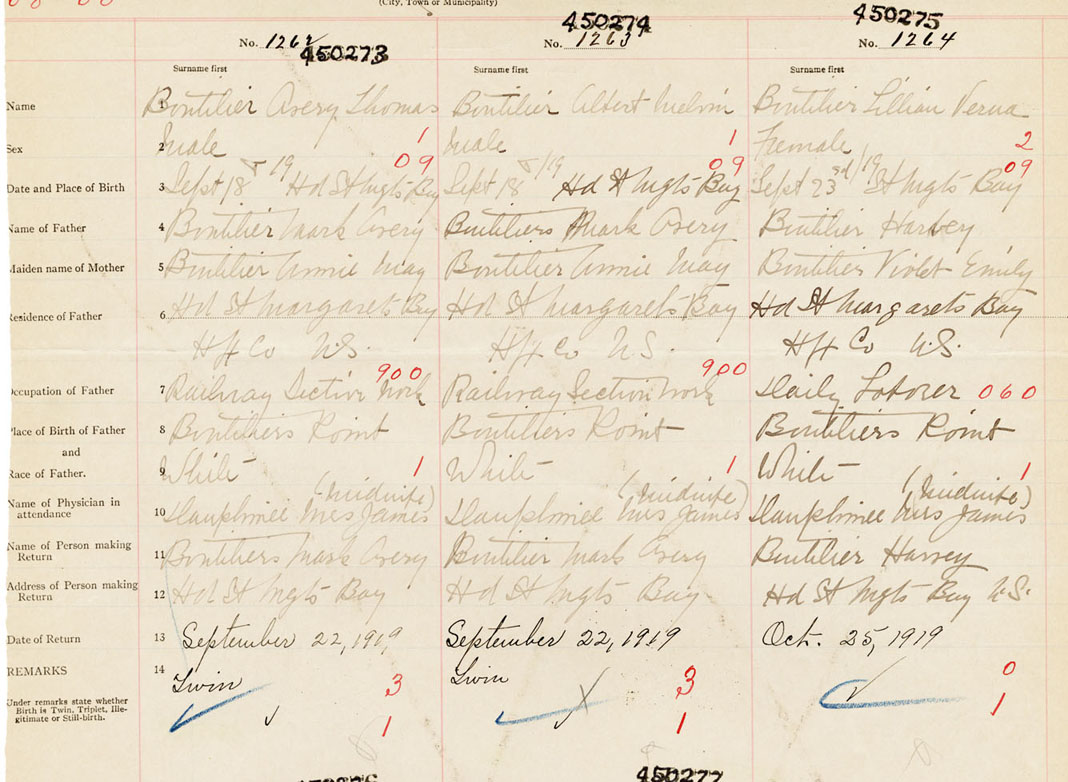 (City, Town or Municipality)
450273 450274 450275
No. 1262 No. 1263 No. 1264
Surname first Surname first Surname first
Name 1 Boutilier Avery Thomas Boutilier Albert Melvin Boutilier Lillian Verna
Sex 2 Male 1 Male 1 Female 2
09 09 09
Date and Place of Birth 3 Sept 18 /19 Hd St Mgts Bay Sept 18 /19 Hd St Mgts Bay Sept 23rd /19 St Mgts Bay
Name of Father 4 Boutilier Mark Avery Boutiliers Mark Avery Boutilier Harvey
Maiden name of Mother 5 Boutilier Annie May Boutilier Annie May Boutilier Violet Emily
Residence of Father 6 Hd St Margarets Bay Hd St Margarets Bay Hd St Margarets Bay
Hfx Co N.S. Hfx Co N.S. Hfx Co N.S.
900 900
Occupation of Father 7 Railway Section Work Railway Section Work Daily Laborer 060
Place of Birth of Father 8 Boutiliers Point Boutiliers Point Boutiliers Point
and
Race of Father. 9 White 1 White 1 White 1
(Midwife) (Midwife) (Midwife)
Name of Physician in attendance 10 Dauphinee Mrs James Dauphinee Mrs James Dauphinee Mrs James
Name of Person making Return 11 Boutiliers Mark Avery Boutilier Mark Avery Boutilier Harvey
Address of Person making Return 12 Hd St Mgts Bay Hd St Mgts Bay Hd St Mgts Bay N.S.
Date of Return 13 September 22, 1919 September 22, 1919 Oct. 25, 1919
REMARKS 14 Twin 3 Twin 3 0
Under remarks state whether Birth is Twin, Triplet, Ille-
gitimate or Still-birth. 1 1 1
450277